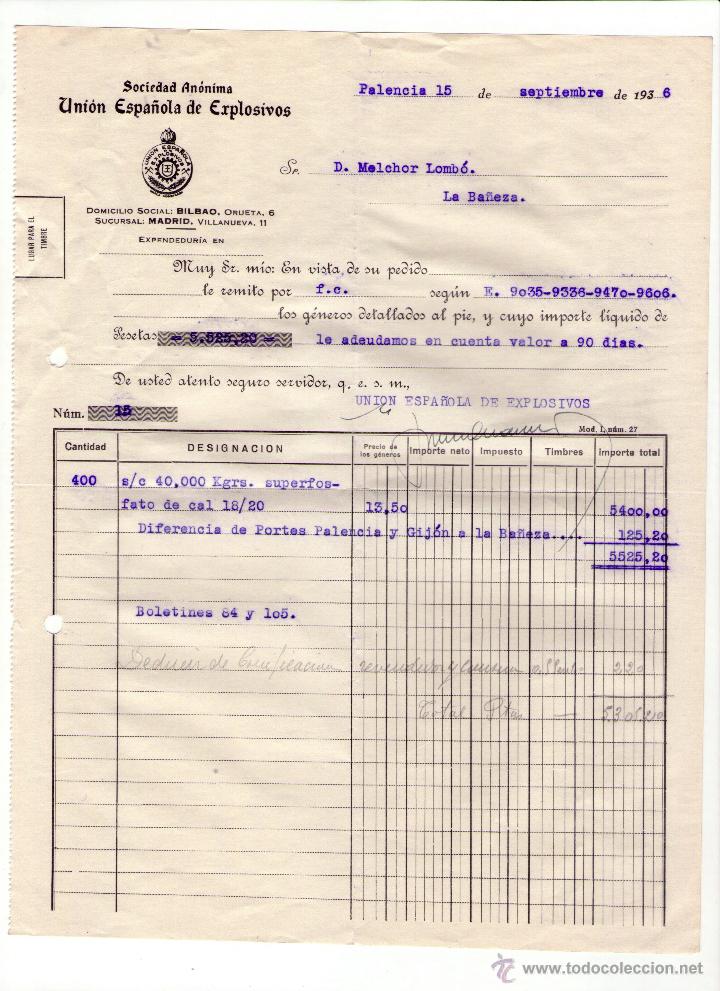 Sociedad Anónima
Unión Española de Explosivos
Palencia 15 de septiembre de 1936
UNION ESPAÑOLA DE EXPLOSIVOS
Sr. D. Melchor Lombó.
La Bañeza.
LUGAR PARA EL
TIMBRE
DOMICILIO SOCIAL: BILBAO, ORUETA, 6
SUCURSAL: MADRID, VILLANUEVA, 11
EXPENDEDURÍA EN
Muy Sr. mío: En vista de su pedido
le remito por f.c. según E. 9035-9336-9470-9606.
los géneros detallados al pie, y cuyo importe líquido de
Pesetas = 5.525,20 = le adeudamos en cuenta valor a 90 dias.
De usted atento seguro servidor, q. e. s. m.,
UNION ESPAÑOLA DE EXPLOSIVOS
Núm. 15
Mod. I, núm. 27
Cantidad DESIGNACION Precio de los géneros Importe neto Impuesto Timbres Importe total
400 s/c 40,000 Kgrs. superfos-
fato de cal 18/20 13,50 5400,00
Diferencia de Portes Palencia y Gijón a la Bañeza.... 125,20
5525,20
Boletines 84 y 105.
Deducir de bonificacion 220
Total Ptas — 5305,20
todocoleccion
www.todocoleccion.net